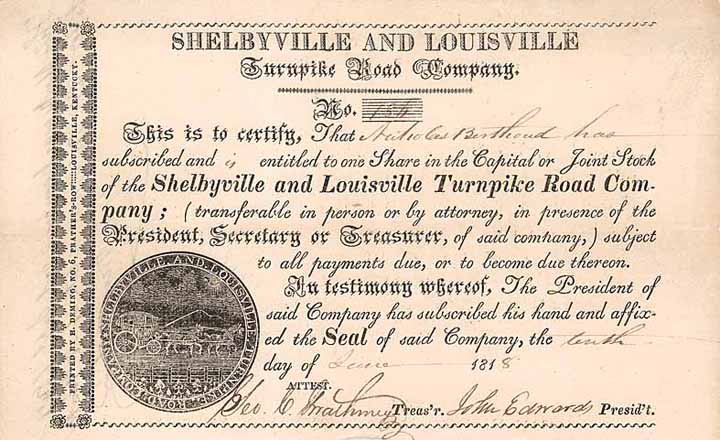 SHELBYVILLE AND LOUISVILLE
Turnpike Road Company.
No.
This is to certify, That Nicholas Berthoud has
subscribed and is entitled to one Share in the Capital or Joint Stock
of the Shelbyville and Louisville Turnpike Road Com-
pany; (transferable in person or by attorney, in presence of the
President, Secretary or Treasurer, of said company,) subject
to all payments due, or to become due thereon.
In testimony whereof, The President of
said Company has subscribed his hand and affix-
ed the Seal of said Company, the tenth
day of June 1818
ATTEST.
Geo. C. Gwathmey Treas'r. John Edwards Presid't.
PRINTED BY H. DEMING, NO. 6, PRATHER'S-ROW::::LOUISVILLE, KENTUCKY.
SHELBYVILLE AND LOUISVILLE TURNPIKE ROAD COMPANY